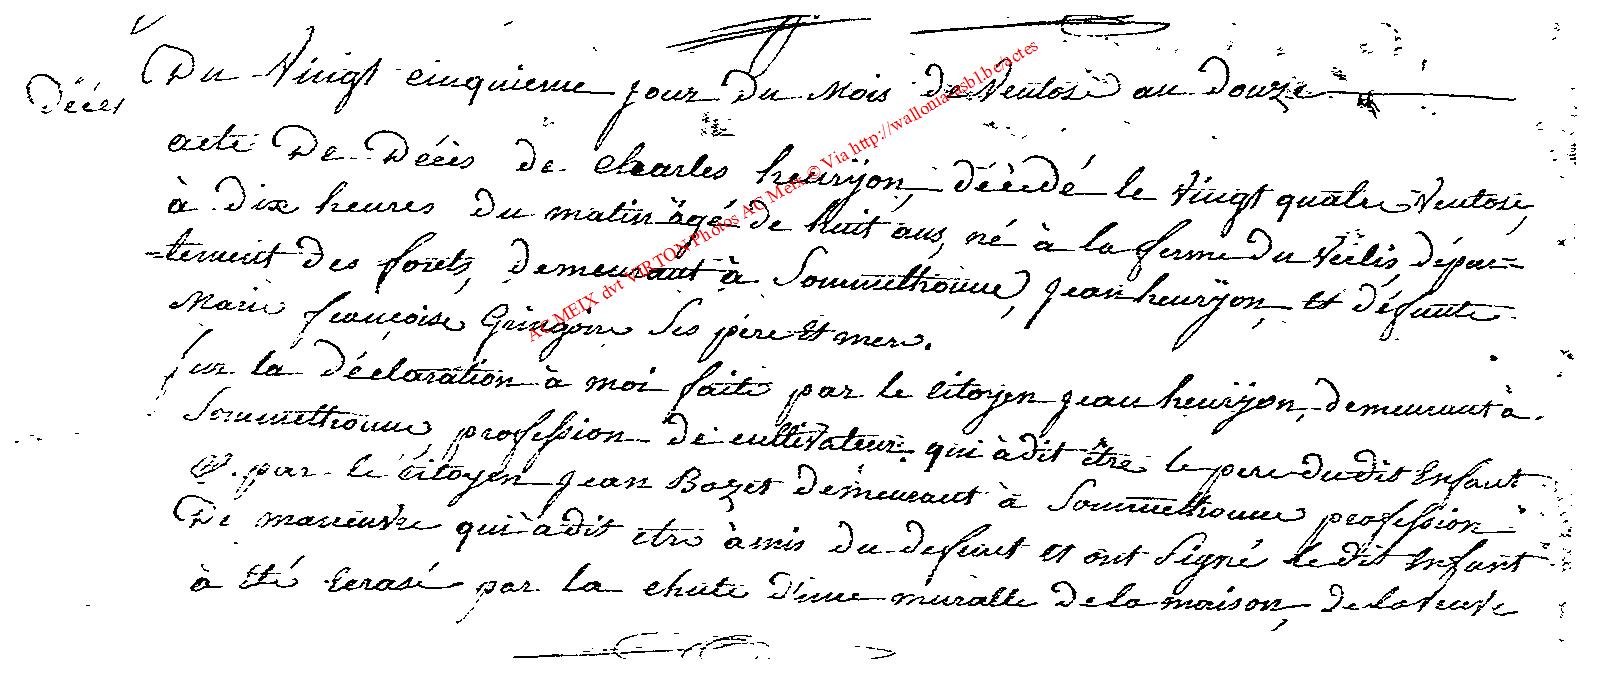 Du Vingt cinquieme jour du Mois de Ventose an douze
Décès
acte De Décès de Charles henryon, décédé le Vingt quatre Ventose,
à dix heures du matin âgé de huit ans, né à la ferme du dépar=
-tement des forets, demeurant à Sommethonne, jean henryon, et défunte
Marie françoise Gringoire Ses père et mere.
sur la déclaration à moi faite par le Citoyen jean henryon, demeurant à
Sommethonne profession de cultivateur qui à dit être le pere du dit Enfant
&. par le citoyen jean Bozet demeurant à Sommethonne profession
De maneuvre qui à dit etre àmis du defunt et ont Signé le dit Enfant
à été Ecrasé par la chute d'une muralle de la maison, de la veuve
AC MEIX dvt VIRTON Photos AC Meix © Via http://wallonia-asbl.be/actes